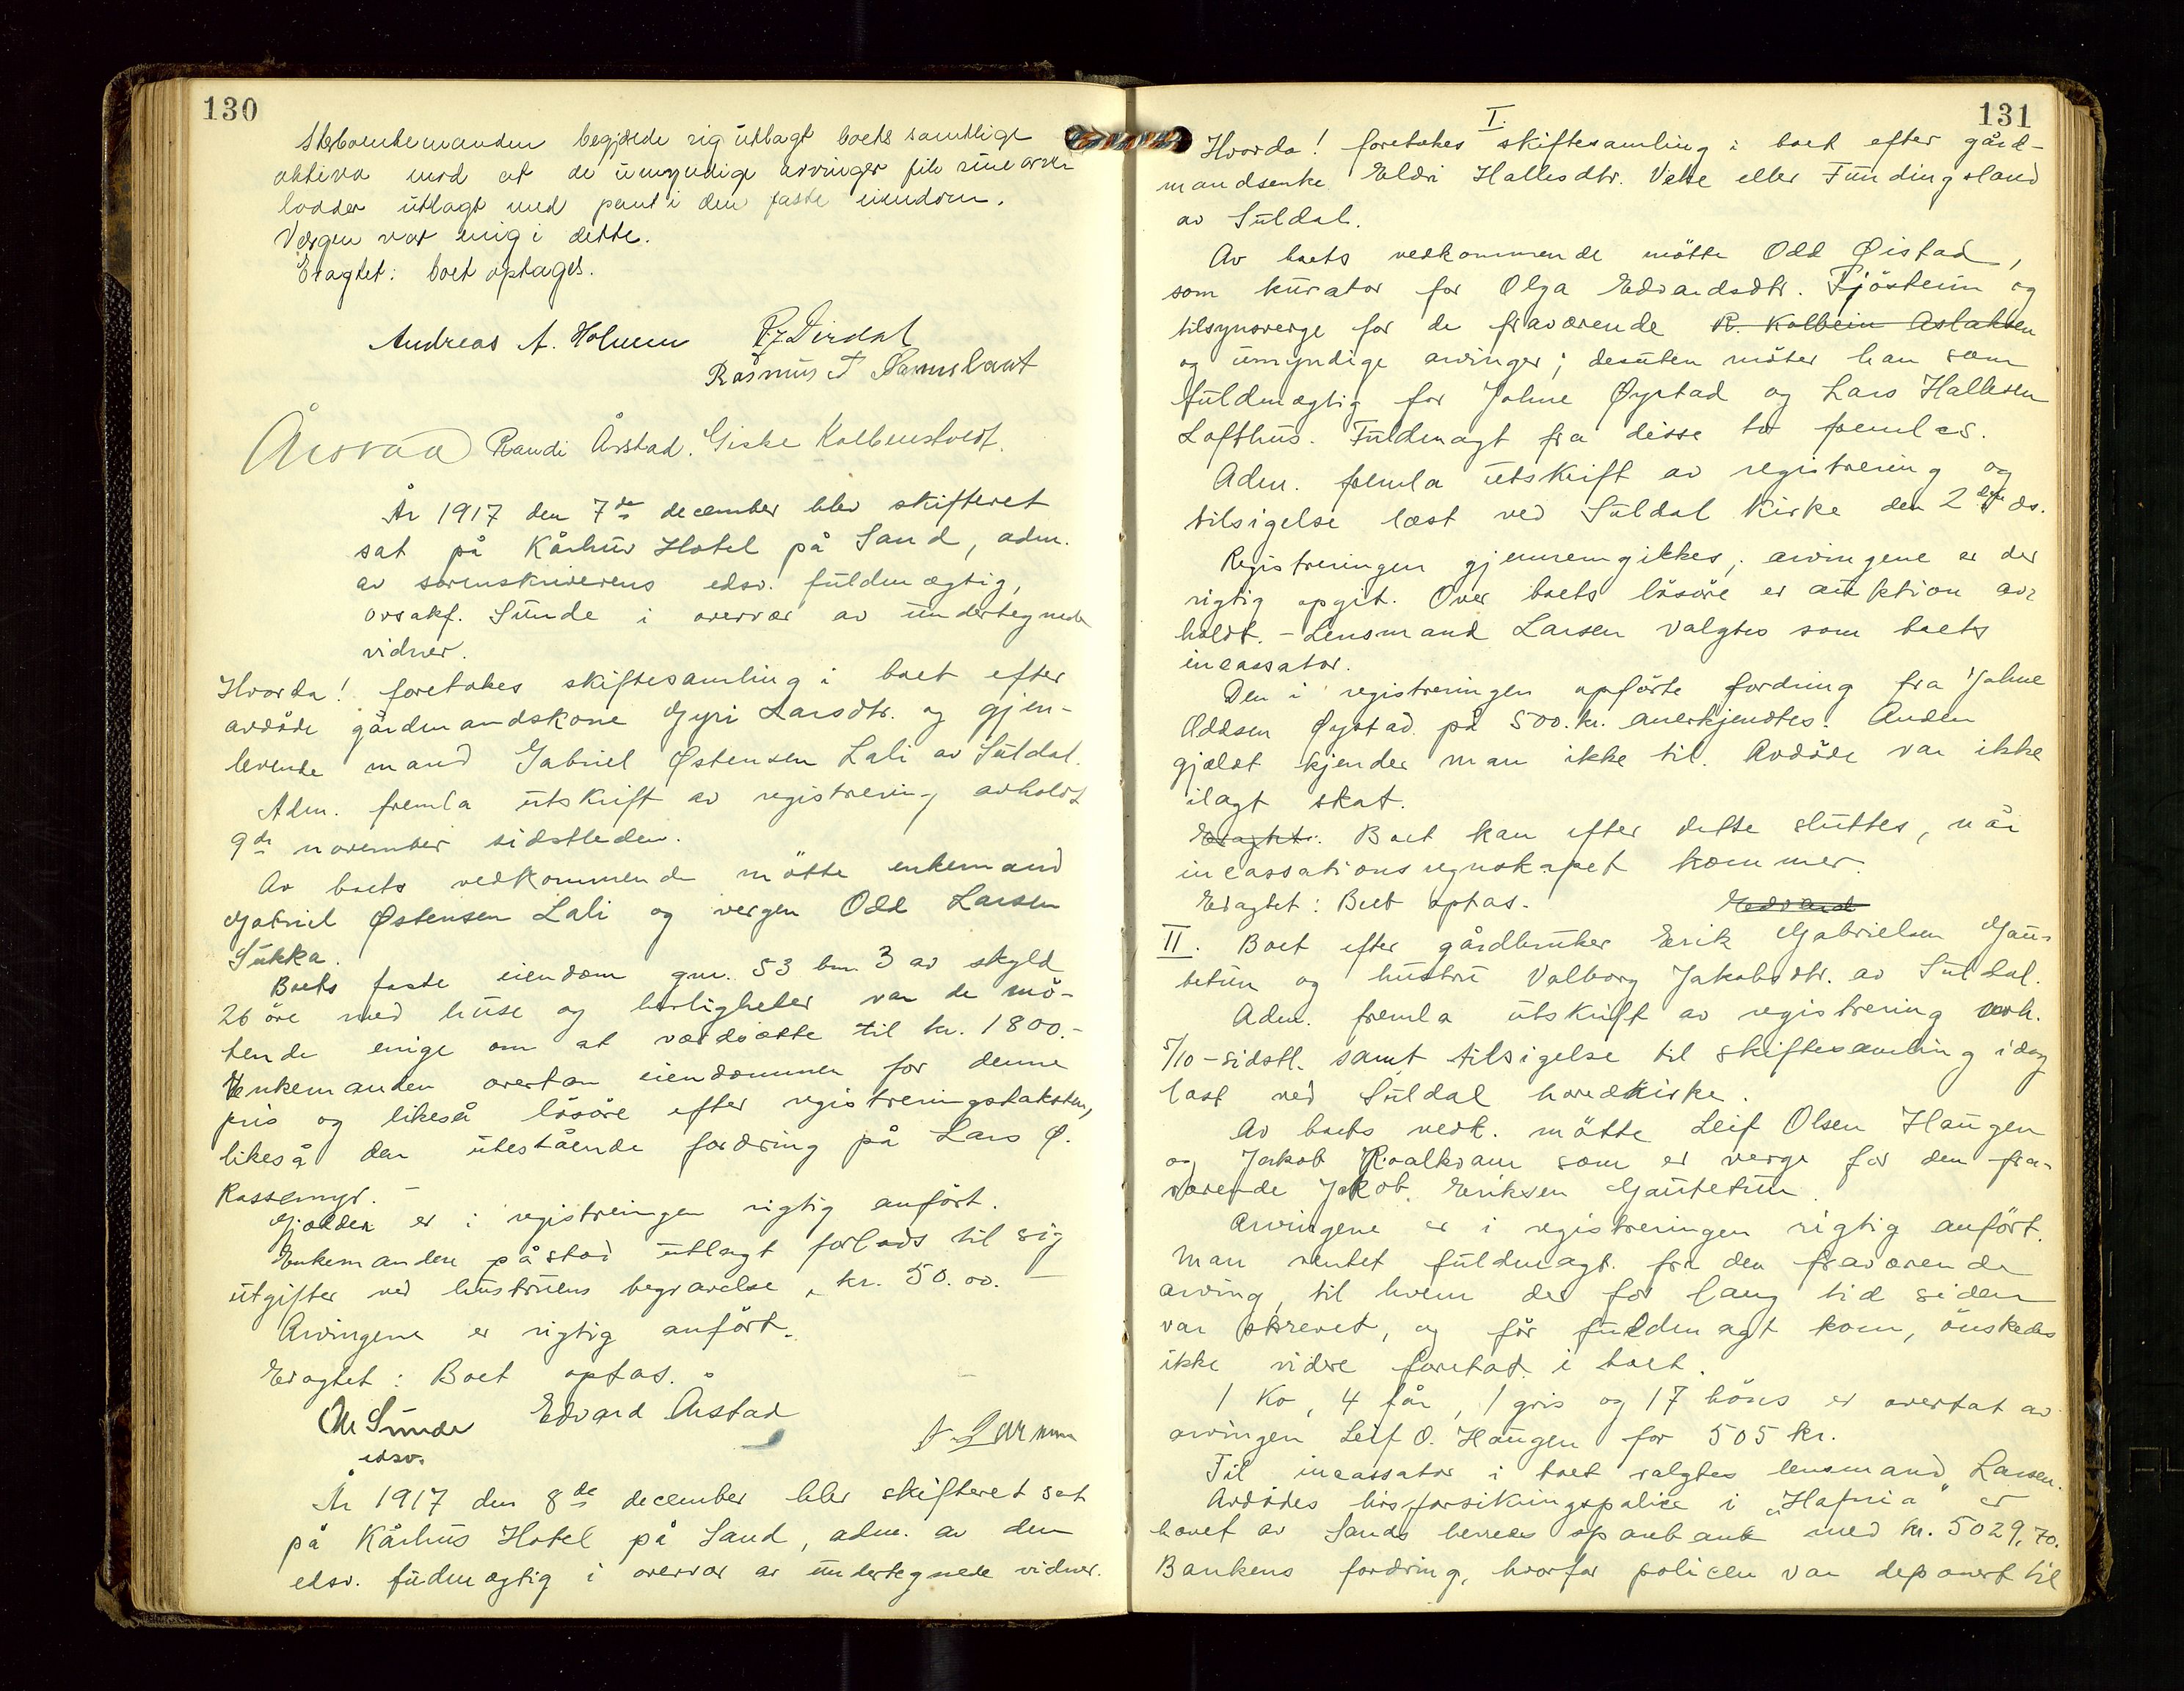 130
Sterboenkemanden begjærde sig utlagt boets samtlige
aktiva mod at de umyndige arvinger fik sine arve
lodder utlagt med pant i den faste eiendom.
Vergen var enig i dette.
Eragtet: boet optages.
Andreas A. Holmen
Rasmus T
Randi Årstad. Giske
År 1917 den 7de december blev skifteret
sat på Kårhus Hotel på Sand, adm.
av sorenskriverens edsv. fuldmægtig,
ovsakf. Sunde i overvær av undertegnede
vidner.
Hvorda! foretokes skiftesamling i boet efter
avdöde gårdmandskone Gyri Larsdtr. og gjen-
levende mand Gabriel Østensen Lali av Suldal.
Adm. fremla utskrift av registrering avholdt
9de november sidstleden.
Av boets vedkommende mötte enkemand
Gabriel Østensen Lali og vergen Odd Larsen
Sukka.
Boets faste eiendom gnr. 53 bnr. 3 av skyld
26 öre med huse og herligheter var de mö-
tende enige om at værdsætte til kr. 1800.-
Enkemanden overtar eiendommen for denne
pris og likeså lösöre efter registreringstaksten,
likeså den utestående fordring på Lars Ø.
Rassemyr. -
Gjælden er i registreringen rigtig anfört.
Enkemanden påstod utlagt forlods til sig
utgifter ved hustruens begravelse, kr. 50.00. -
Arvingene er rigtig anfört.
Eragtet: Boet optas.
Chr Sunde Edvard Årstad
edsv.
År 1917 den 8de december blev skifteret sat
på Kårhus Hotel på Sand, adm. av den
edsv. fudmægtig i overvær av undertegnede vidner.
131
I.
Hvorda! foretokes skiftesamling i boet efter gård-
mandsenke Eldri Hallesdtr. Vetse eller Fundingsland
av Suldal.
Av boets vedkommende mötte Odd Øistad,
som kurator for Olga Edvardsdtr. Fjöstein og
tilsynsverge for de fraværende R. Kolbein Aslaksen
og umyndige arvinger; desuten möter han som
fuldmægtig for Johne Øystad og Lars Hallesen
Lofthus. Fuldmagt fra disse to fremlæs.
Adm. fremla utskrift av registrering og
tilsigelse læst ved Suldal Kirke den 2den ds.
Registreringen gjennemgikkes; arvingene er der
rigtig opgit. Over boets lösöre er auktion av-
holdt. - Lensmand Larsen valgtes som boets
incassator.
Den i registreringen opförte fordring fra Johne
Oddsen Øystad på 500.kr. anerkjendtes. Anden
gjæld kjender man ikke til. Avdöde var ikke
ilagt skat.
Eragtet: Boet kan efter dette sluttes, når
incassationsregnskapet kommer.
Eragtet: Boet optas. Edvard
II. Boet efter gårdbruker Erik Gabrielsen Gau-
tetun og hustru Valborg Jakobsdtr. av Suldal.
Adm. fremla utskrift av registrering avh.
5/10-sidstl. samt tilsigelse til skiftesamling idag
læst ved Suldal hovedkirke.
Av boets vedk. mötte Leif Olsen Haugen
og Jakob Roalkvam som er verge for den fra-
værende Jakob Eriksen Gautetun.
Arvingene er i registreringen rigtig anfört.
Man ventet fuldmagt fra den fraværende
arving, til hvem der for lang tid siden
var skrevet, og för fuldmagt kom, önskedes
ikke videre foretat i boet.
1 Ko, 4 får, 1 gris og 17 höns er overtat av
arvingen Leif O. Haugen for 505 kr.
Til incassator i boet valgtes lensmand Larsen.
Avdödes livsforsikringspolice i "Hafnia" er
hævet av Sands herreds sparebank med kr. 5029,70.
Bankens fordring, hvorfor policen var deponert til